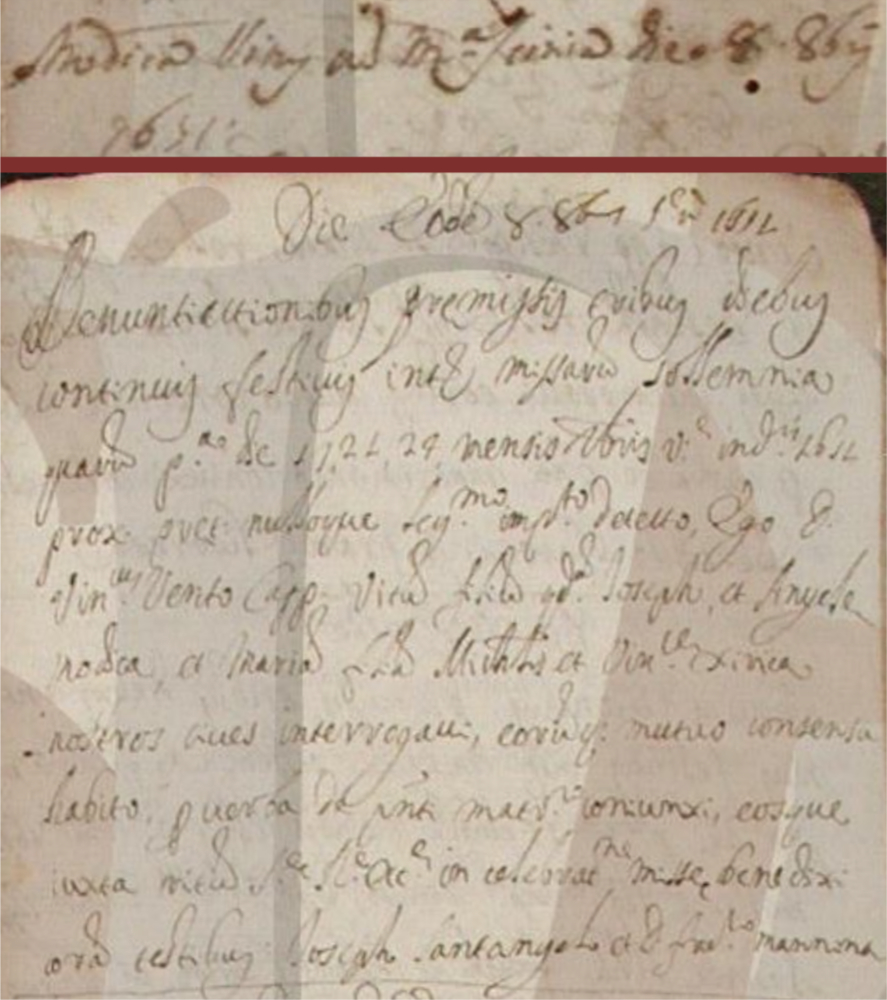 Modica Viny ad Mª Scivia die 8. 8bÿ
1651:
Die Eodẽ 8. 8br 1651
Denuntiationibus premissis tribus diebus
continuis festivis intẽ missarũ sollemnia
quarũ pª de 17, 21 24 mensis 7bris ind. 1651
prox. pret. nulloque leg.mo imp.to detecto, Ego D.
Vin.us Vento Capp. Vitũ filiũ qd. Joseph, et Angele
modica, et Mariã fil. Michelis et Vin.
nostros cives interrogavi, eorũq. mutuo consensu
habito, p verba de pñti matr. coniunxi, eosque
iuxta ritũ S. in celebrat.ne misse benedixi
corã testibus Joseph Santangelo et D. mannona